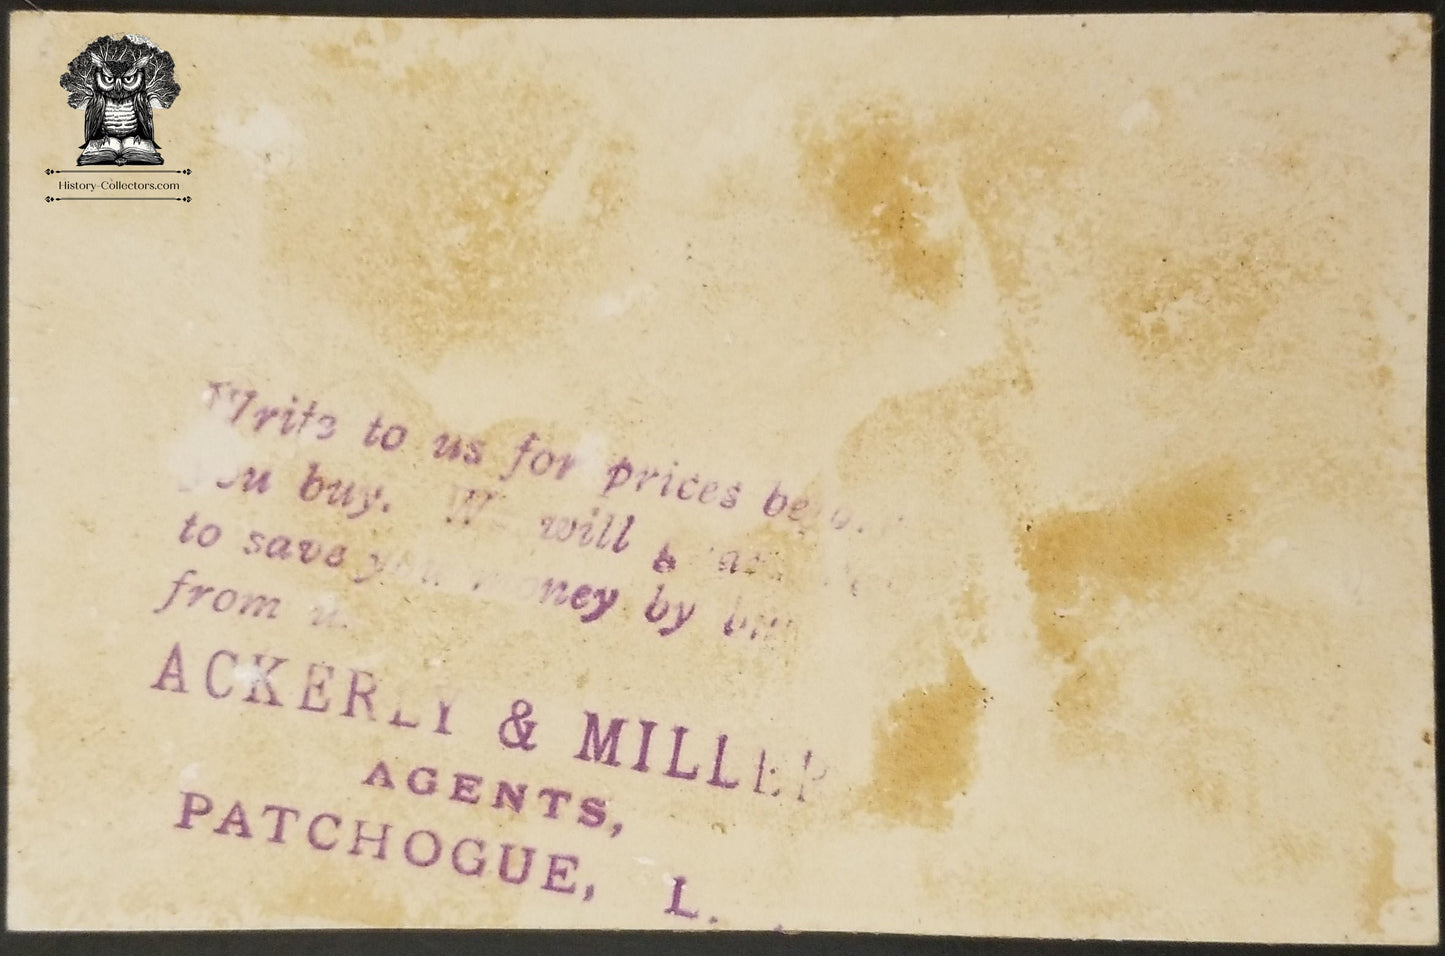 History-Collectors.com
Write to us for prices
you buy. We will
to save you money by
from
ACKERLY & MILLER
AGENTS,
PATCHOGUE, L.